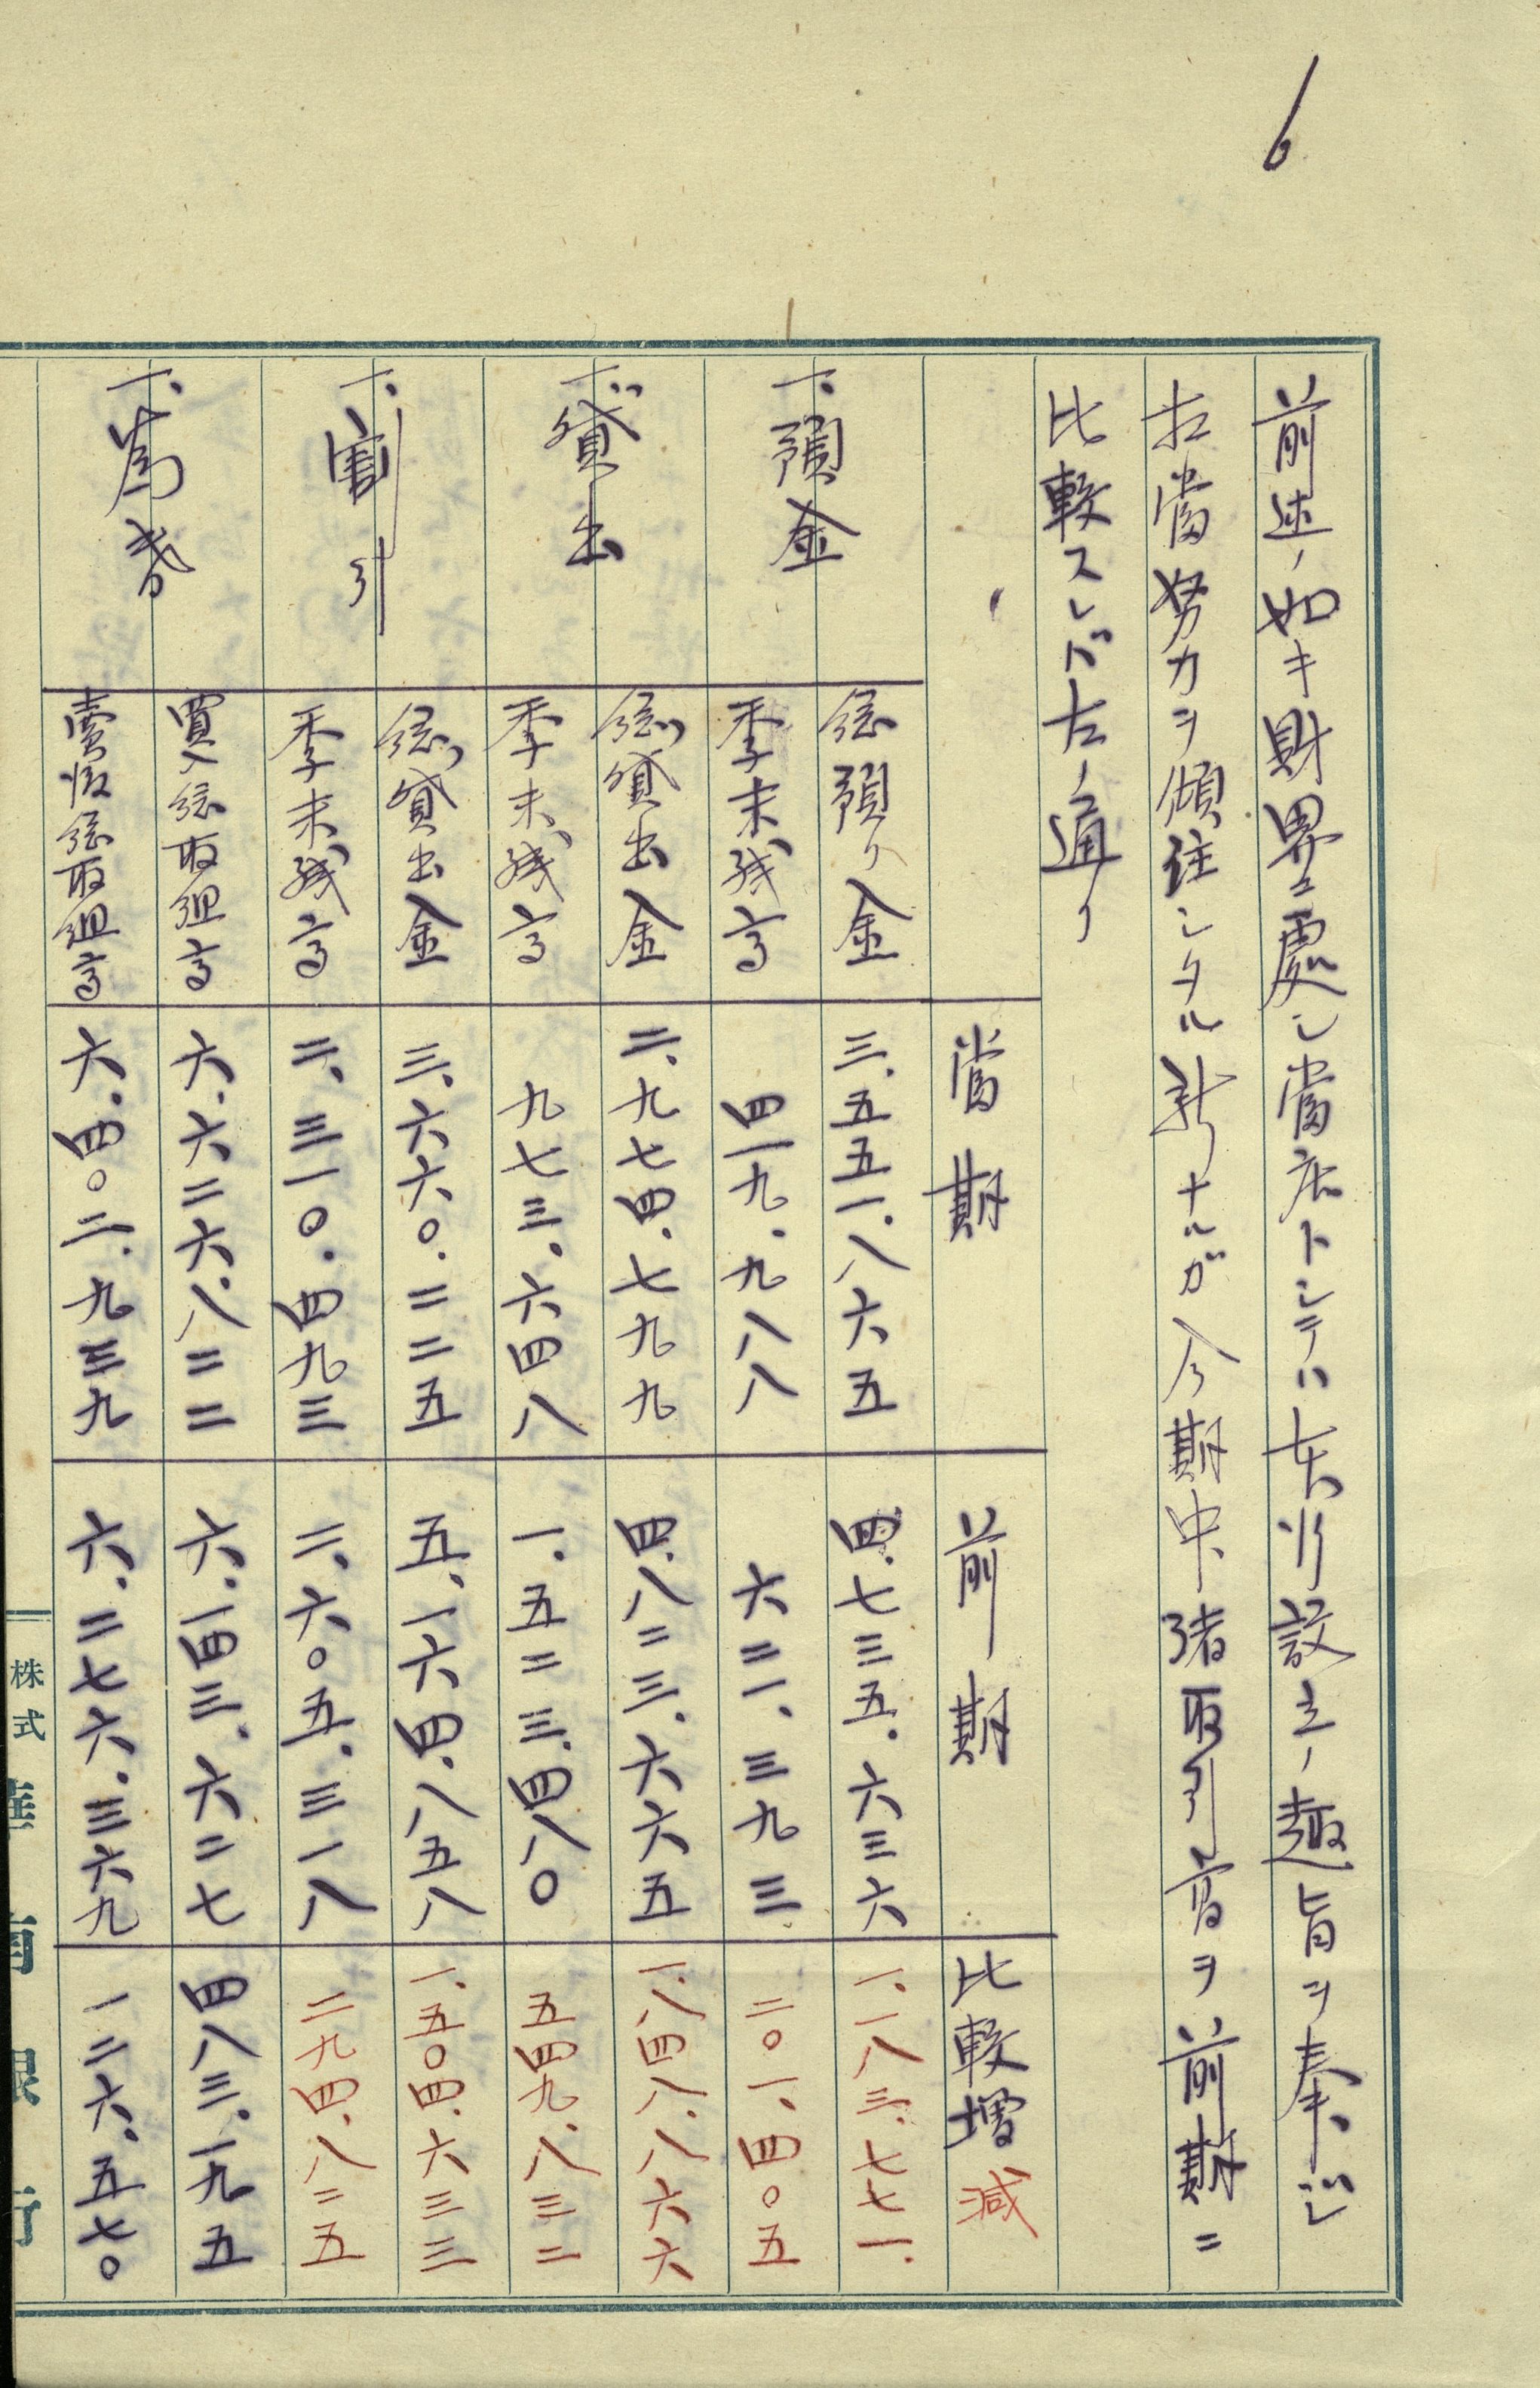 6
前述ノ如キ財界ニ處シ當店トシテハ本行設立ノ趣旨ヲ奉ジ
相當努力ヲ傾注シタル訳ナルガ今期中諸取引高ヲ前期ニ
比較スレバ左ノ通リ
當期 前期 比較增減
一、預金 総預リ金 三、五五一、八六五 四、七三五、六三六 一、一八三、七七一
季末残高 四一九、九八八 六二一、三九三 二〇一、四〇五
一、貸出 総貸出金 二、九七四、七九九 四、八二三、六六五 一、八四八、八六六
季末残高 九七三、六四八 一、五二三、四八〇 五四九、八三二
一、割引 総貸出金 三、六六〇、二二五 五、一六四、八五八 一、五〇四、六三三
季末残高 二、三一〇、四九三 二、六〇五、三一八 二九四、八二五
一、為替 買入総取組高 六、六二六、八二二 六、一四三、六二七 四八三、一九五
賣渡総取組高 六、四〇二、九三九 六、二七六、三六九 一二六、五七〇
株式 華南銀行